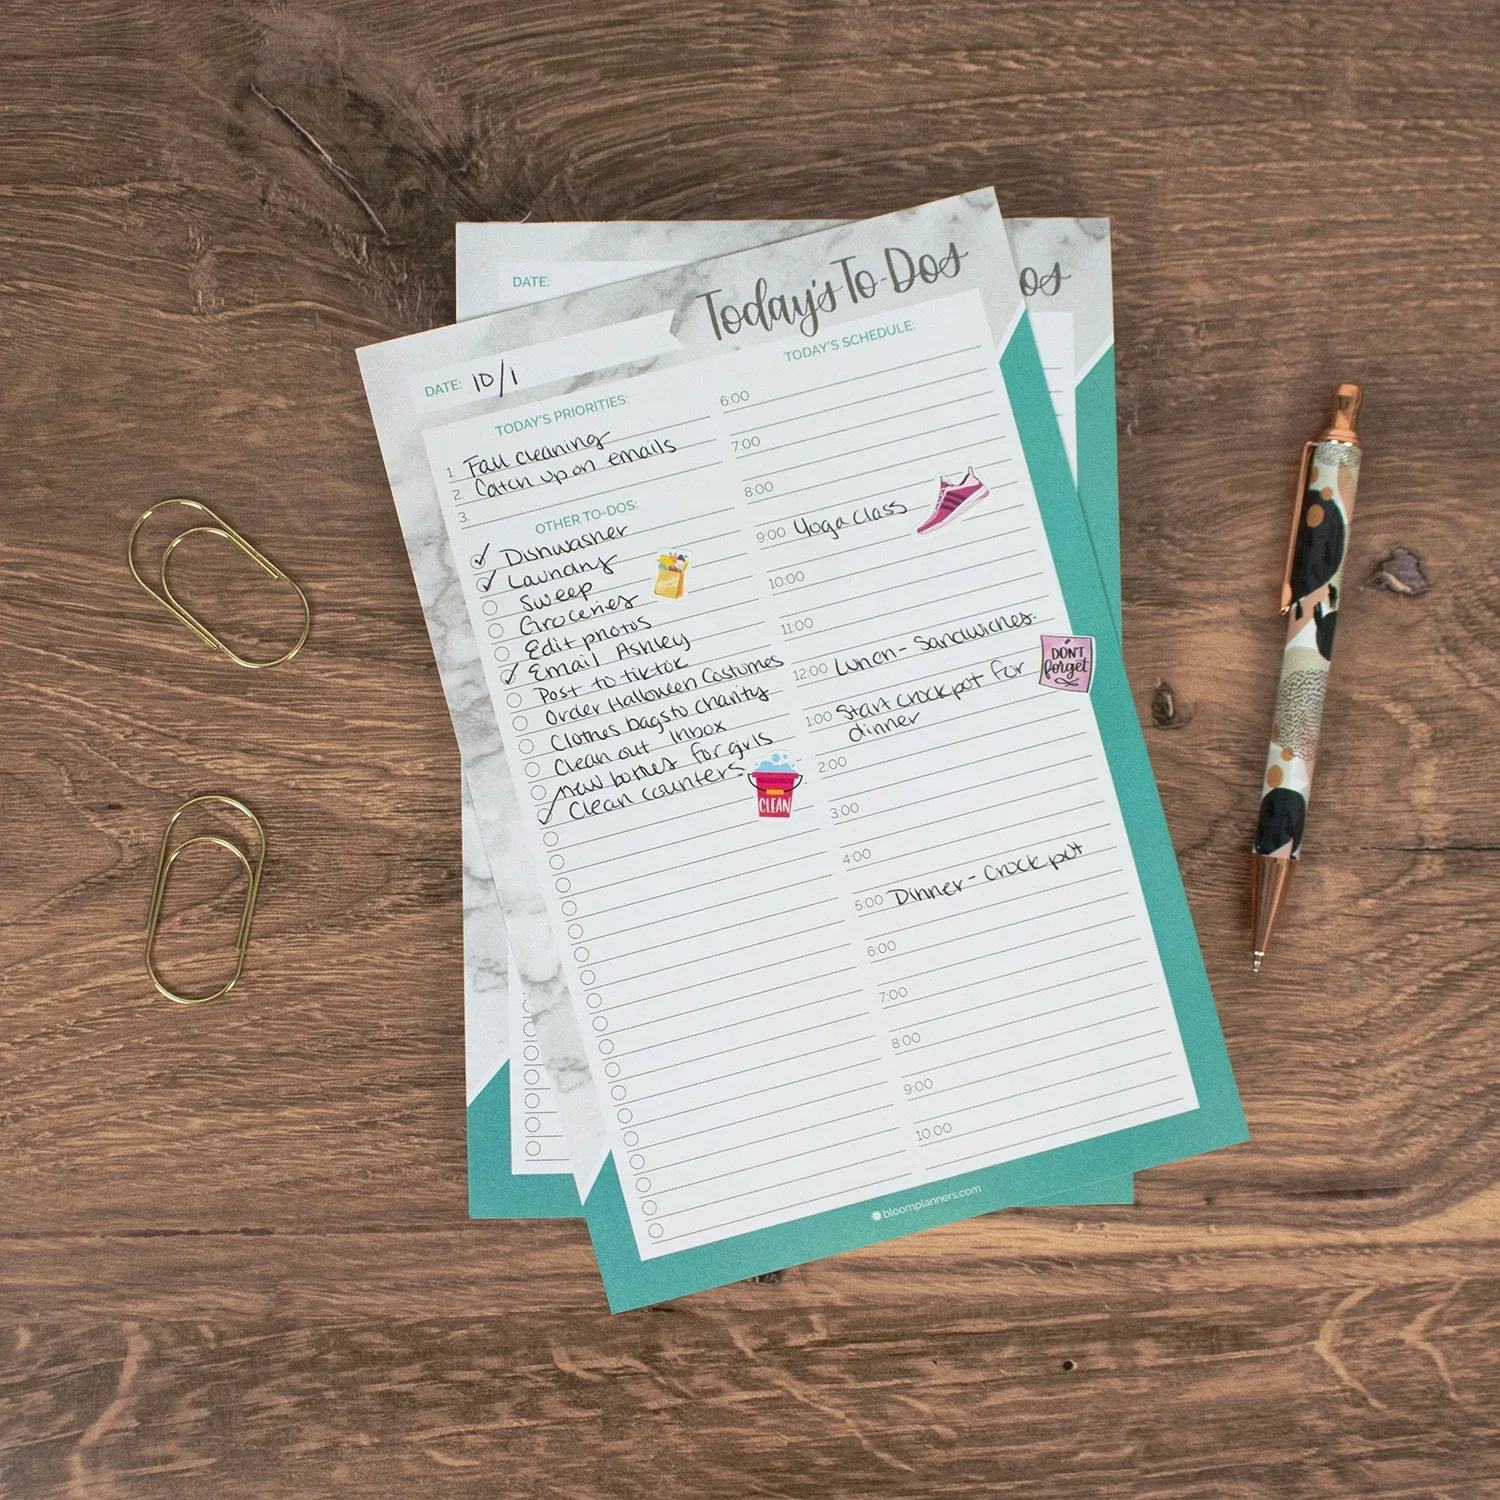 DATE:
os
Today's To-Dos
DATE: 10/1
TODAY'S PRIORITIES:
1. Fall cleaning
2. Catch up on emails
3.
OTHER TO-DOS:
Dishwasher
Laundry
Sweep
Groceries
Edit photos
Email Ashley
Post to tiktok
Order Halloween Costumes
Clothes bags to charity
Clean out inbox
new bottles for girls
Clean counters
CLEAN
TODAY'S SCHEDULE:
6:00
7:00
8:00
9:00 Yoga class
10:00
11:00
12:00 Lunch - Sandwiches.
1:00 Start crockpot for
dinner
DON'T
forget
2:00
3:00
4:00
5:00 Dinner - Crockpot
6:00
7:00
8:00
9:00
10:00
bloomplanners.com